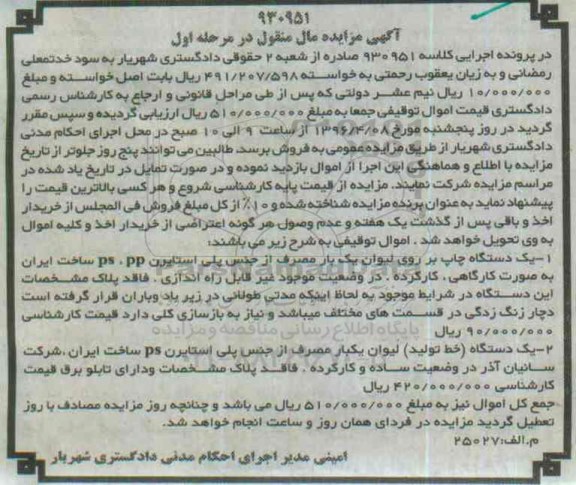 ۹۳۰۹۵۱
آگهی مزایده مال منقول در مرحله اول
در پرونده اجرایی کلاسه ۹۳۰۹۵۱ صادره از شعبه ۲ حقوقی دادگستری شهریار به سود خدتمعلی
رمضانی و به زیان یعقوب رحمتی به خواسته ۴۹۱/۲۰۷/۵۹۸ ریال بابت اصل خواسته و مبلغ
۱۰/۰۰۰/۰۰۰ ریال نیم عشر دولتی که پس از طی مراحل قانونی و ارجاع به کارشناس رسمی
دادگستری قیمت اموال توقیفی جمعا به مبلغ ۵۱۰/۰۰۰/۰۰۰ ریال ارزیابی گردیده و سپس مقرر
گردید در روز پنجشنبه مورخ ۱۳۹۶/۴/۰۸ از ساعت ۹ الی ۱۰ صبح در محل اجرای احکام مدنی
دادگستری شهریار از طریق مزایده عمومی به فروش برسد. طالبین می توانند پنج روز جلوتر از تاریخ
مزایده با اطلاع و هماهنگی این اجرا از اموال بازدید نموده و در صورت تمایل در تاریخ یاد شده در
مراسم مزایده شرکت نمایند. مزایده از قیمت پایه کارشناسی شروع و هر کسی بالاترین قیمت را
پیشنهاد نماید به عنوان برنده مزایده شناخته شده و ۱۰٪ از کل مبلغ فروش فی المجلس از خریدار
اخذ و باقی پس از گذشت یک هفته و عدم وصول هر گونه اعتراضی از خریدار اخذ و کلیه اموال
به وی تحویل خواهد شد . اموال توقیفی به شرح زیر می باشند:
۱-یک دستگاه چاپ بر روی لیوان یک بار مصرف از جنس پلی استایرن ps ، pp ساخت ایران
به صورت کارگاهی ، کارکرده . در وضعیت موجود غیر قابل راه اندازی . فاقد پلاک مشخصات
این دستگاه در شرایط موجود به لحاظ اینکه مدتی طولانی در زیر باد وباران قرار گرفته است
دچار زنگ زدگی در قسمت های مختلف میباشد و نیاز به بازسازی کلی دارد قیمت کارشناسی
۹۰/۰۰۰/۰۰۰ ریال
پایگاه اطلاع رسانی مناقصه و مزایده
۲-یک دستگاه (خط تولید) لیوان یکبار مصرف از جنس پلی استایرن ps ساخت ایران ،شرکت
سانیان آذر در وضعیت ساده و کارکرده . فاقد پلاک مشخصات ودارای تابلو برق قیمت
کارشناسی ۴۲۰/۰۰۰/۰۰۰ ریال
جمع کل اموال نیز به مبلغ ۵۱۰/۰۰۰/۰۰۰ ریال می باشد و چنانچه روز مزایده مصادف با روز
تعطیل گردید مزایده در فردای همان روز و ساعت انجام خواهد شد.
م.الف:۲۵۰۲۷
امینی مدیر اجرای احکام مدنی دادگستری شهریار